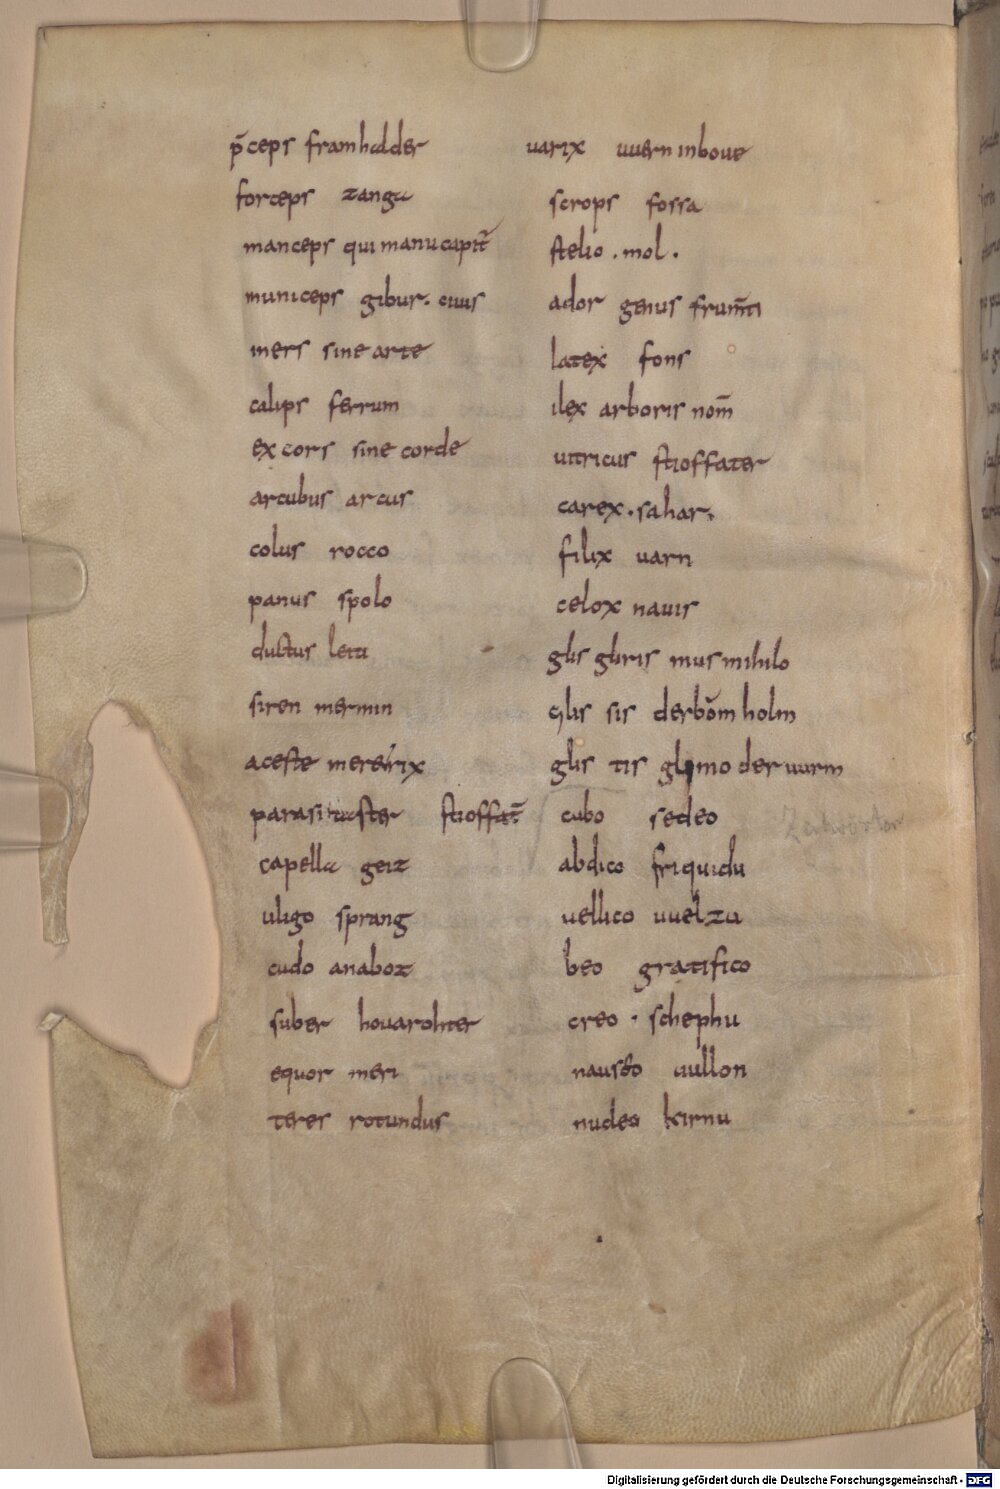 p̄ceps framhalder
forceps zanga
manceps qui manu capit̄
municeps gibur. ciuis
iners sine arte
calips ferrum
excors sine corde
arcubus arcus
colus rocco
panus spolo
ductus leiti
siren merimin
aceste
parasi stioffat̄
capella geiz
uligo sprang
cudo anaboz
suber houarohter
equor meri
teres rotundus
uarix uuern in boue
scrops fossa
stelio . mol .
ador genus frum̄ti
latex fons
ilex arboris nom̄
uitricus stioffater
carex . sahar.
filix uarn
celox nauis
glis gliris mus mihilo
glis sis der bōm holm
glis tis glimo der uurm
cubo sedeo
abdico friquidu
uellico uuelzu
beo gratifico
creo . schephu
nauseo uullon
nudeo kirnu
Zeitwörter
Digitalisierung gefördert durch die Deutsche Forschungsgemeinschaft - DFG